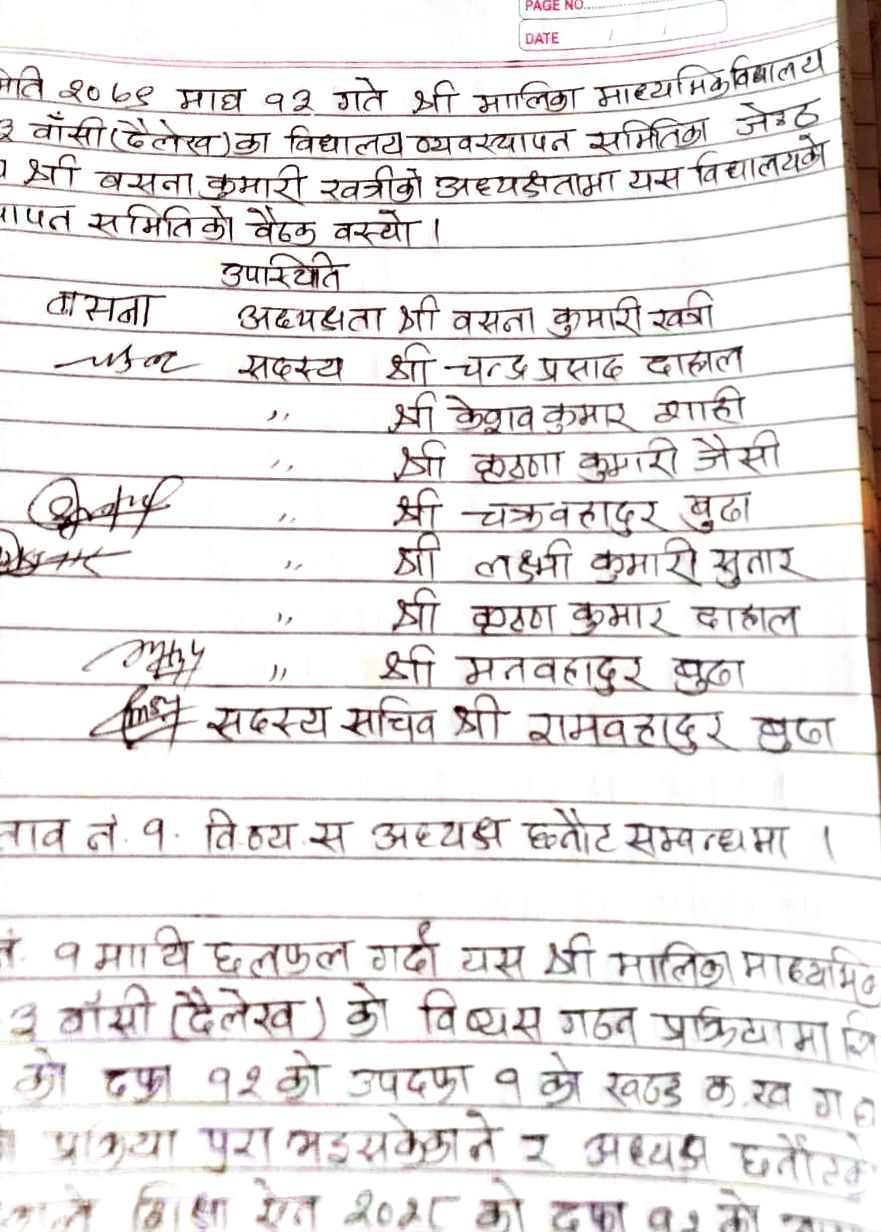 PAGE NO.
DATE / /
मिति २०७९ माघ १२ गते श्री मालिका माध्यमिक विद्यालय
३ बाँसी (दैलेख) का विद्यालय व्यवस्थापन समितिका जेष्ठ
श्री वसना कुमारी खत्रीको अध्यक्षतामा यस विद्यालयको
समितिको वैठक वस्यो ।
उपस्थिति
वासना अध्यक्षता श्री वसना कुमारी खत्री
सदस्य श्री चन्द्र प्रसाद दाहाल
,, श्री केशव कुमार शाही
,, श्री कृष्णा कुमारी जैसी
,, श्री चक्रवहादुर बुढा
,, श्री लक्ष्मी कुमारी सुतार
,, श्री कृष्ण कुमार दाहाल
,, श्री मनवहादुर बुढा
सदस्य सचिव श्री रामवहादुर बुढा
नं. १. वि.व्य.स अध्यक्ष छनौट सम्वन्धमा ।
नं. १ माथि छलफल गर्दा यस श्री मालिका
३ बाँसी (दैलेख) को विव्यस गठन प्रक्रियामा
को दफा १२ को उपदफा १ को खण्ड क.ख ग
प्रक्रिया पुरा भइसकेकोले र अध्यक्ष
शिक्षा ऐन २०२८ को दफा १२ को